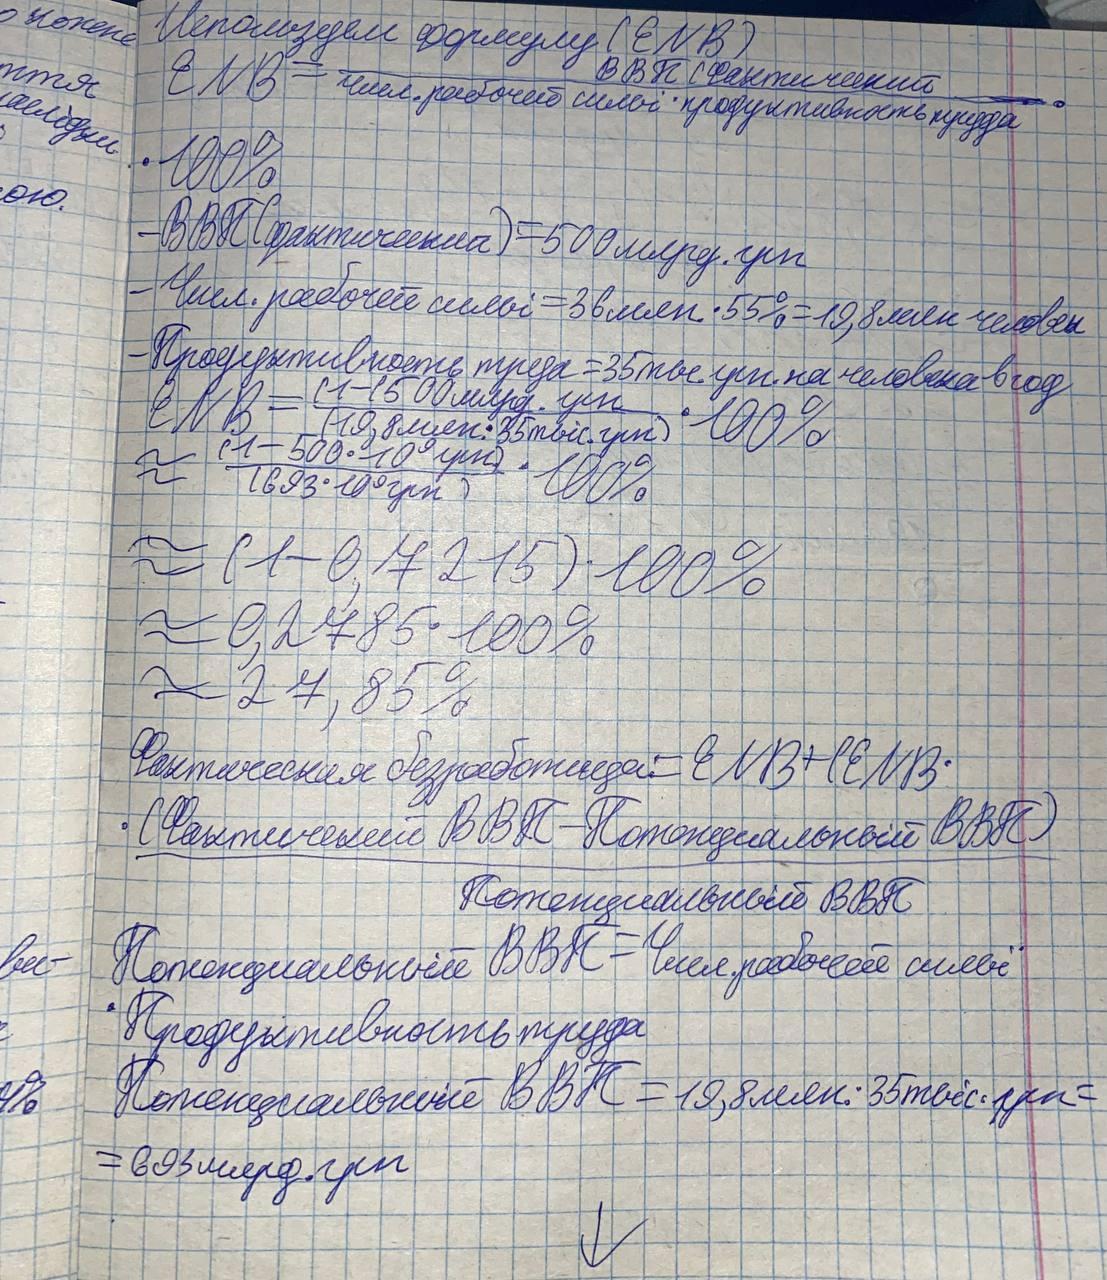 Используем формулу (ENB)
ENB = ВВП (Фактический
Числ. рабочей силы · продуктивность труда ·
· 100%
- ВВП (фактический) = 500 млрд. грн
- Числ. рабочей силы = 36 млн. · 55% = 19,8 млн человек
- Продуктивность труда = 35 тыс. грн. на человека в год
ENB = (1 - (500 млрд. грн
(19,8 млн. · 35 тыс. грн) · 100%
≈ (1 - 500 · 10⁹ грн)
(693 · 10⁹ грн) · 100%
≈ (1 - 0,7215) · 100%
≈ 0,2785 · 100%
≈ 27,85%
Фактическая безработица = ENB + (ENB ·
· (Фактический ВВП - Потенциальный ВВП)
Потенциальный ВВП
Потенциальный ВВП = Числ. рабочей силы
· Продуктивность труда
Потенциальный ВВП = 19,8 млн. · 35 тыс. грн =
= 693 млрд. грн